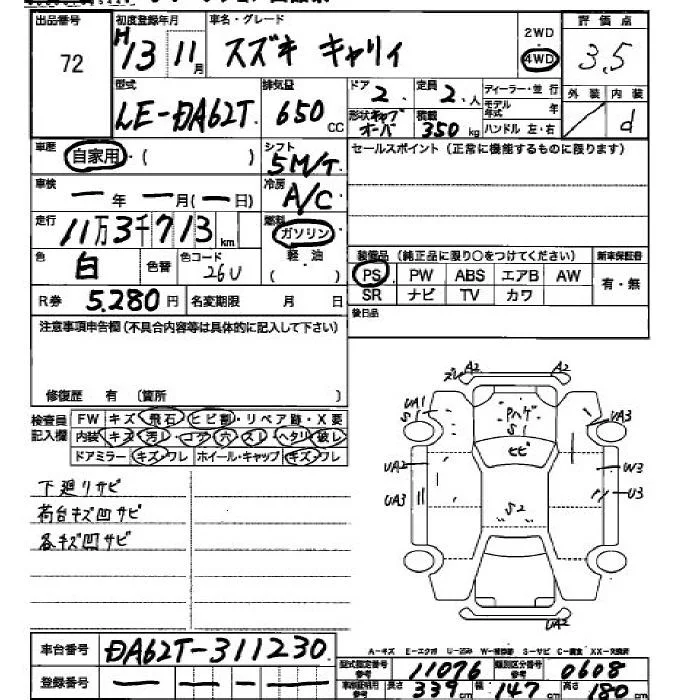 出品番号 72
初度登録年月 H13 11月
車名・グレード スズキ キャリィ
2WD 4WD
評価点 3.5
型式 LE-DA62T
排気量 650 CC
ドア 2 定員 2 人
形状 キャブオーバ 積載 350 kg
ディーラー・並行
モデル年式 年
ハンドル 左・右
外装 内装 d
車歴 自家用・( )
シフト 5M/T
セールスポイント(正常に機能するものに限ります)
車検 ー年 ー月(ー日)
冷房 A/C
走行 11万3千713km
燃料 ガソリン 軽・油 ( )
色 白 色替 色コード 26U
装備品(純正品に限り○をつけてください) 新車保証書
PS PW ABS エアB AW 有・無
SR ナビ TV カワ
R券 5,280円 名変期限 月 日
後日品
注意事項申告欄(不具合内容等は具体的に記入して下さい)
修復歴 有 〔箇所 〕
検査員記入欄
FW キズ・飛石・ヒビ割・リペア跡・X要
内装 キズ・汚レ・コゲ・穴・スレ・ヘタリ・破レ
ドアミラー キズ・ワレ ホイール・キャップ キズ・ワレ
下廻りサビ
荷台キズ凹サビ
各キズ凹サビ
ズレ A2 A2
UA1 S1
Pハゲ S1
UA3
ヒビ
UA2 W3
UA3 U3
S2
UA2
A-キズ E-エクボ U-凹み W-補修跡 S-サビ C-腐食 XX-交換済
車台番号 DA62T-311230
登録番号 ー ー ー ー
型式指定番号 11076 類別区分番号 0608
車検証明用参考 長さ参考 339cm 幅 147cm 高さ 180cm